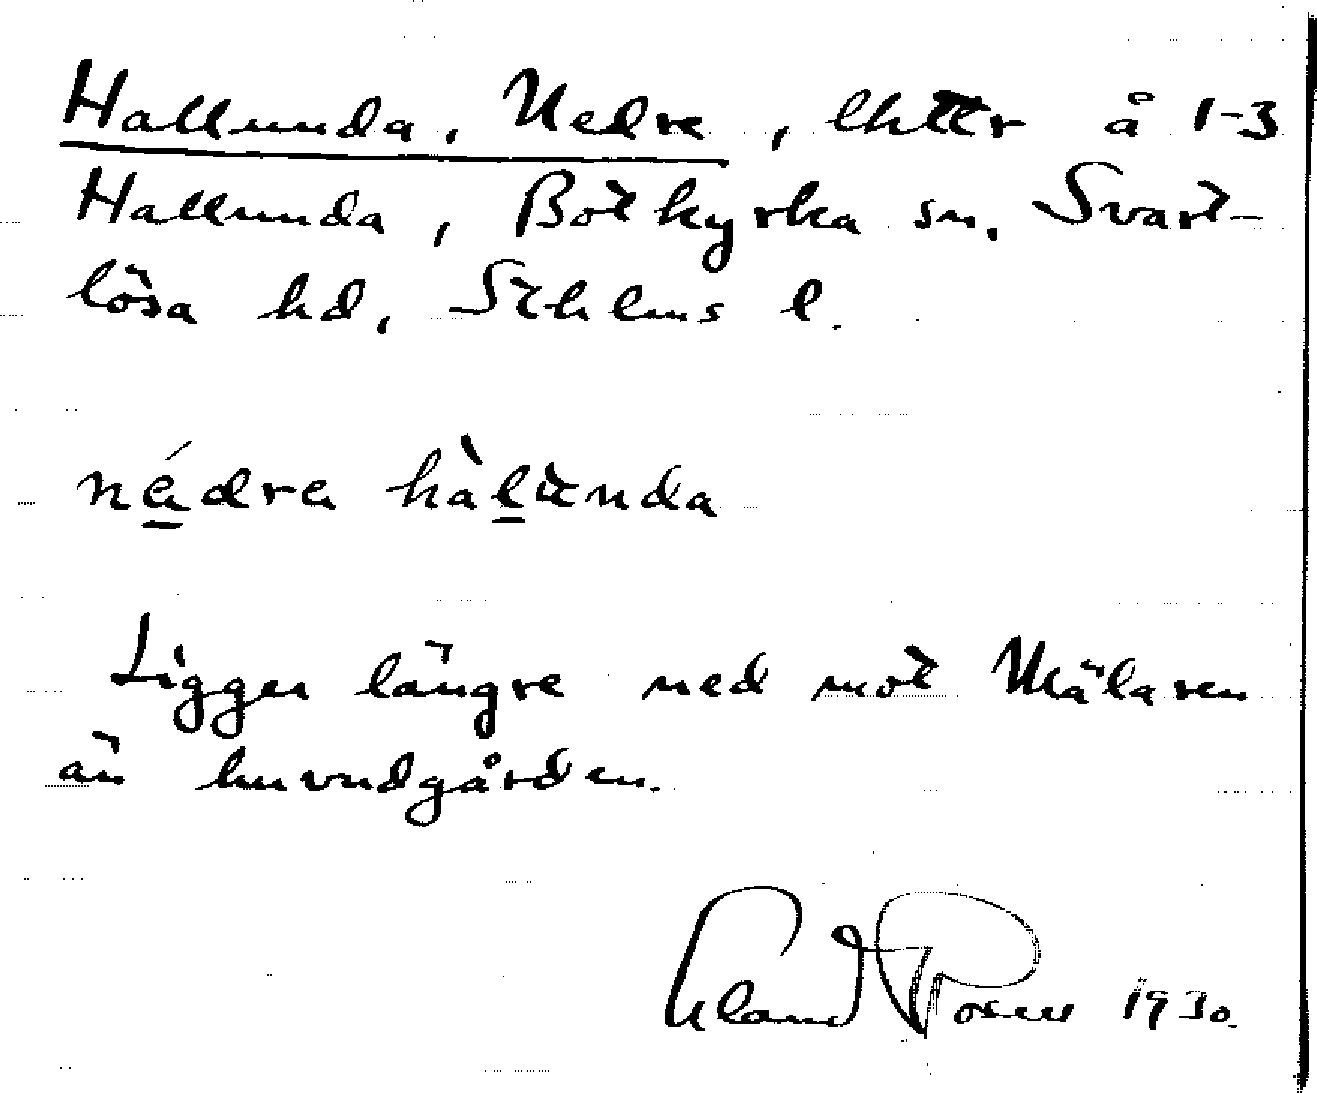 Hallunda, Nedre, lhttr å 1-3
Hallunda, Botkyrka sn. Svart-
lösa hd, Sthlms l.
nédra hàlunda
Ligger längre ned mot Mälaren
än huvudgården.
1930.